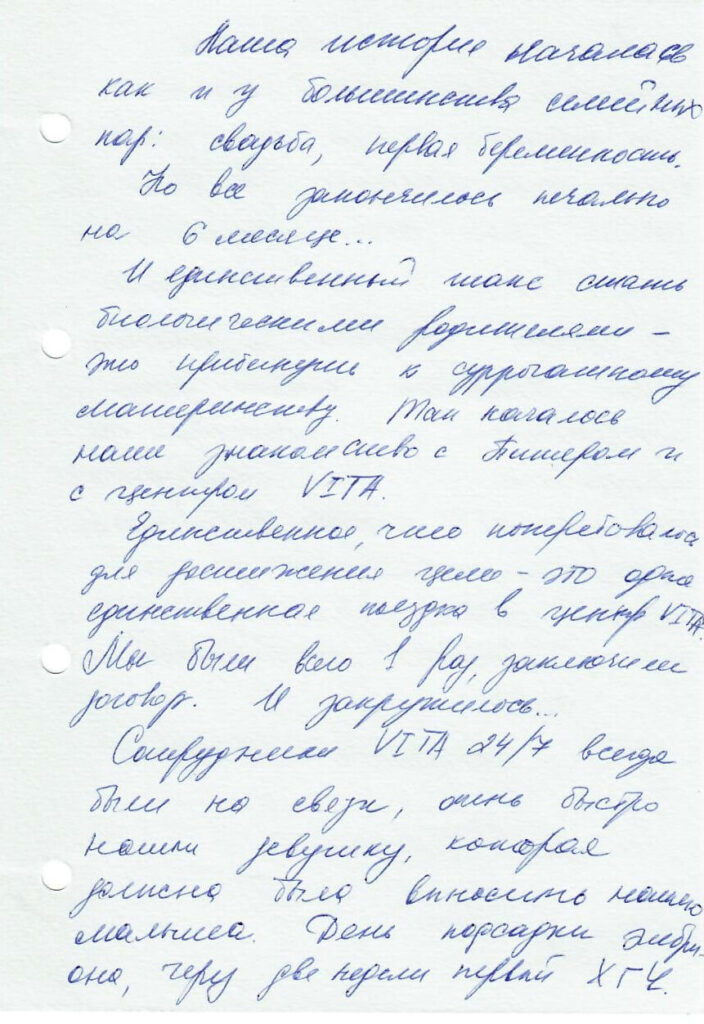 Наша история началась
как и у большинства семейных
пар: свадьба, первая беременность.
Но все закончилось печально
на 6 месяце...
И единственный шанс стать
биологическими родителями –
это прибегнуть к суррогатному
материнству. Так началось
наше знакомство с Питером и
с центром VITA.
Единственное, что потребовалось
для достижения цели – это одна
единственная поездка в центр VITA.
Мы были всего 1 раз, заключили
договор. И закружилось...
Сотрудники VITA 24/7 всегда
были на связи, очень быстро
нашли девушку, которая
должна была выносить нашего
малыша. День подсадки эмбри-
она, через две недели первый ХГЧ.